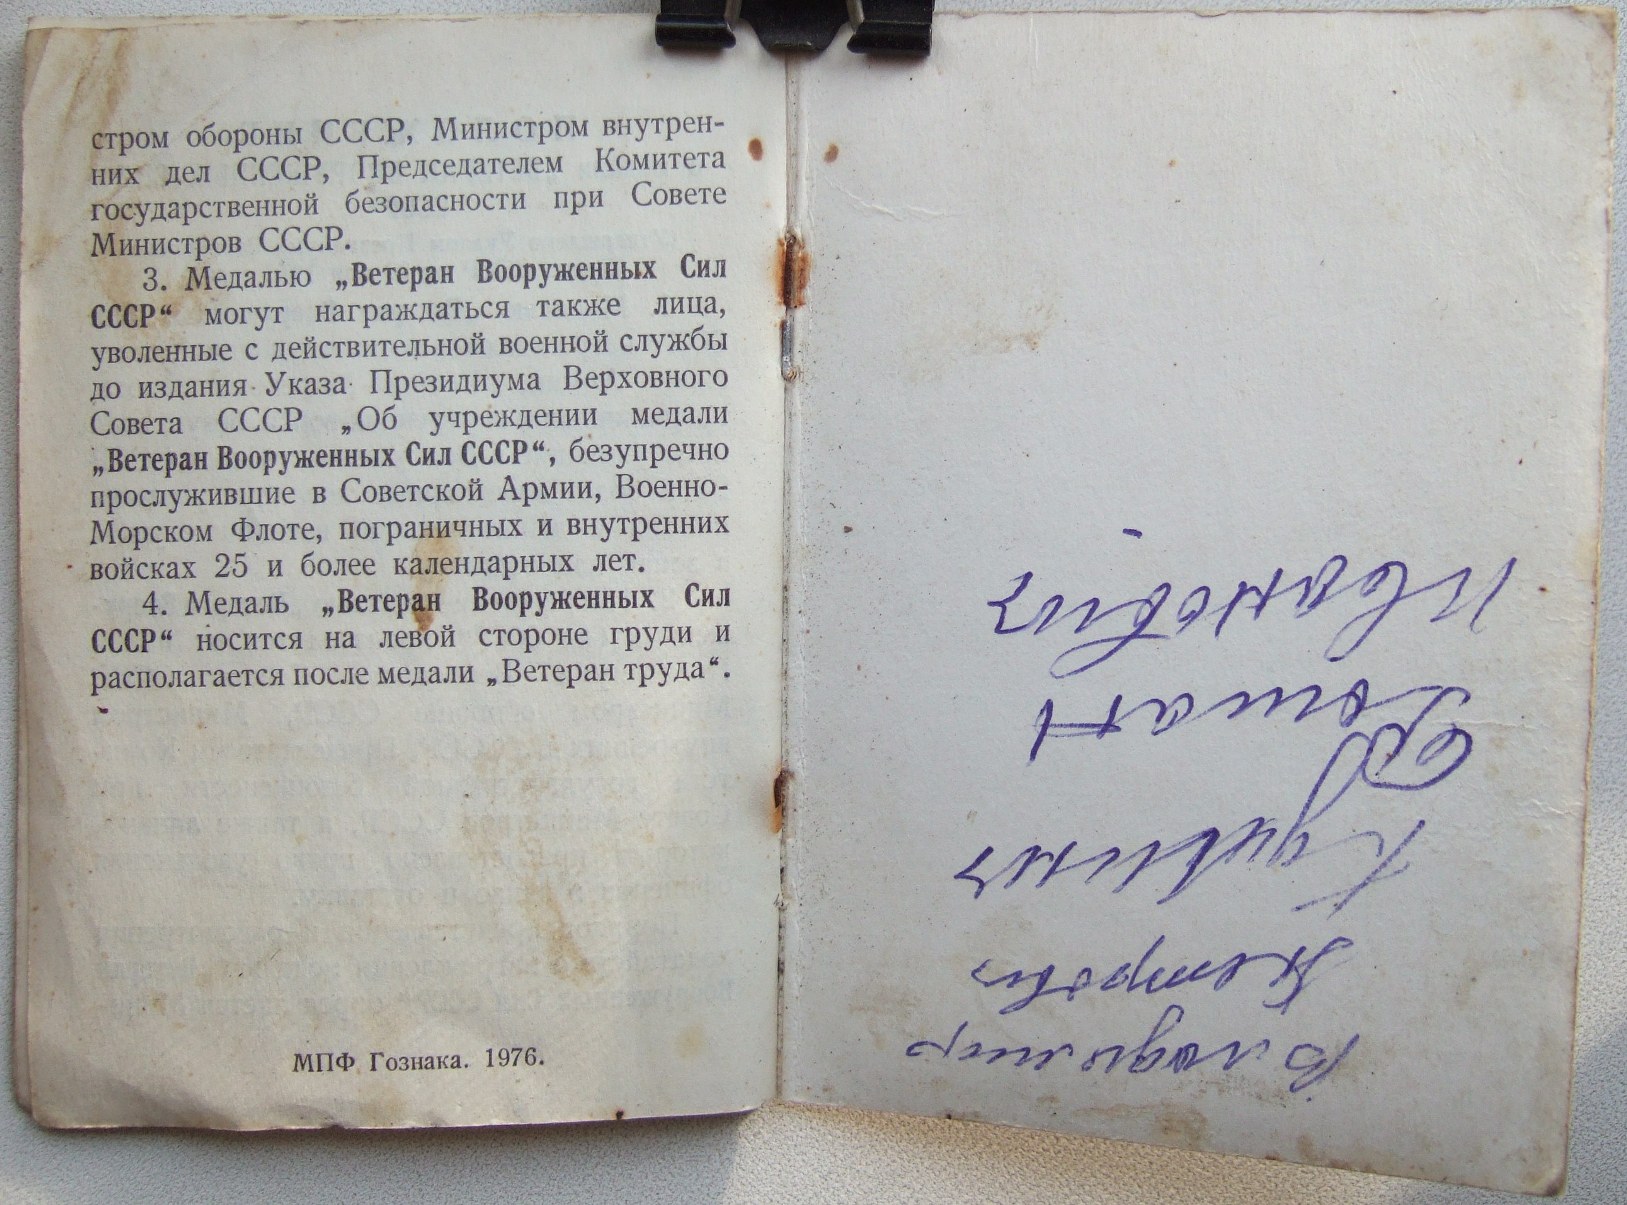 стром обороны СССР, Министром внутрен-
них дел СССР, Председателем Комитета
государственной безопасности при Совете
Министров СССР.
3. Медалью „Ветеран Вооруженных Сил
СССР“ могут награждаться также лица,
уволенные с действительной военной службы
до издания Указа Президиума Верховного
Совета СССР „Об учреждении медали
„Ветеран Вооруженных Сил СССР“, безупречно
прослужившие в Советской Армии, Военно-
Морском Флоте, пограничных и внутренних
войсках 25 и более календарных лет.
4. Медаль „Ветеран Вооруженных Сил
СССР“ носится на левой стороне груди и
располагается после медали „Ветеран труда“.
МПФ Гознака. 1976.
Владимир
Петрович
Роман
Иванович